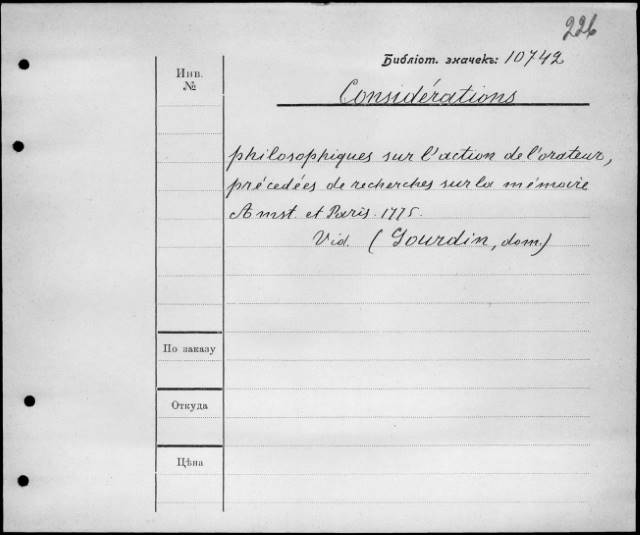 226
Библіот. значекъ: 10742
Инв.
№
Considérations
philosophiques sur l'action de l'orateur,
précedées de recherches sur la mémoire
Amst. et Paris. 1775.
Vid. (Gourdin, dom.)
По заказу
Откуда
Цѣна